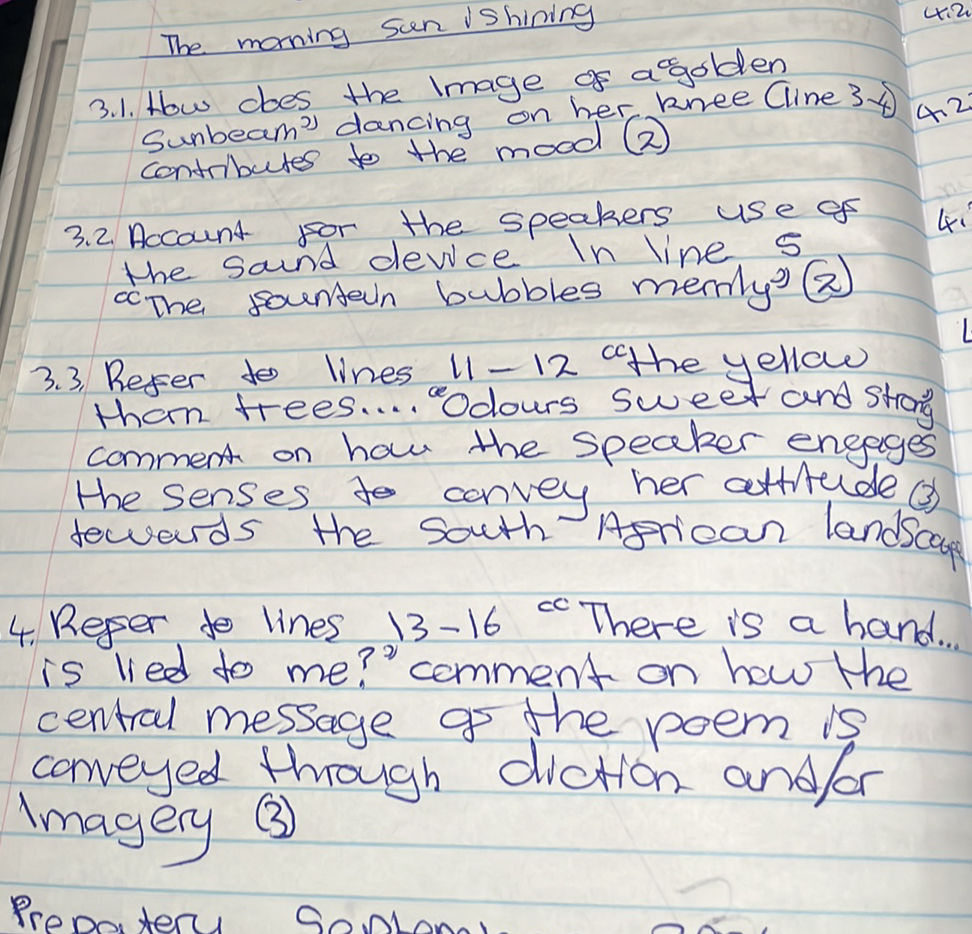 The morning sun is shining
4.2
3.1. How does the Image of a "golden
Sunbeam" dancing on her knee (line 3-4)
contributes to the mood (2)
4.2
3.2. Account for the speakers use of
the sound device In line 5
"The fountein bubbles merrily" (2)
3.3. Refer to lines 11 – 12 "the yellow
thorn trees.... "Odours sweet and strong
comment on how the speaker engages
the senses to convey her attitude (3)
towards the South African landscape
4. Refer to lines 13-16 "There is a hand...
is lied to me?" comment on how the
central message of the poem is
conveyed through diction and/or
Imagery (3)